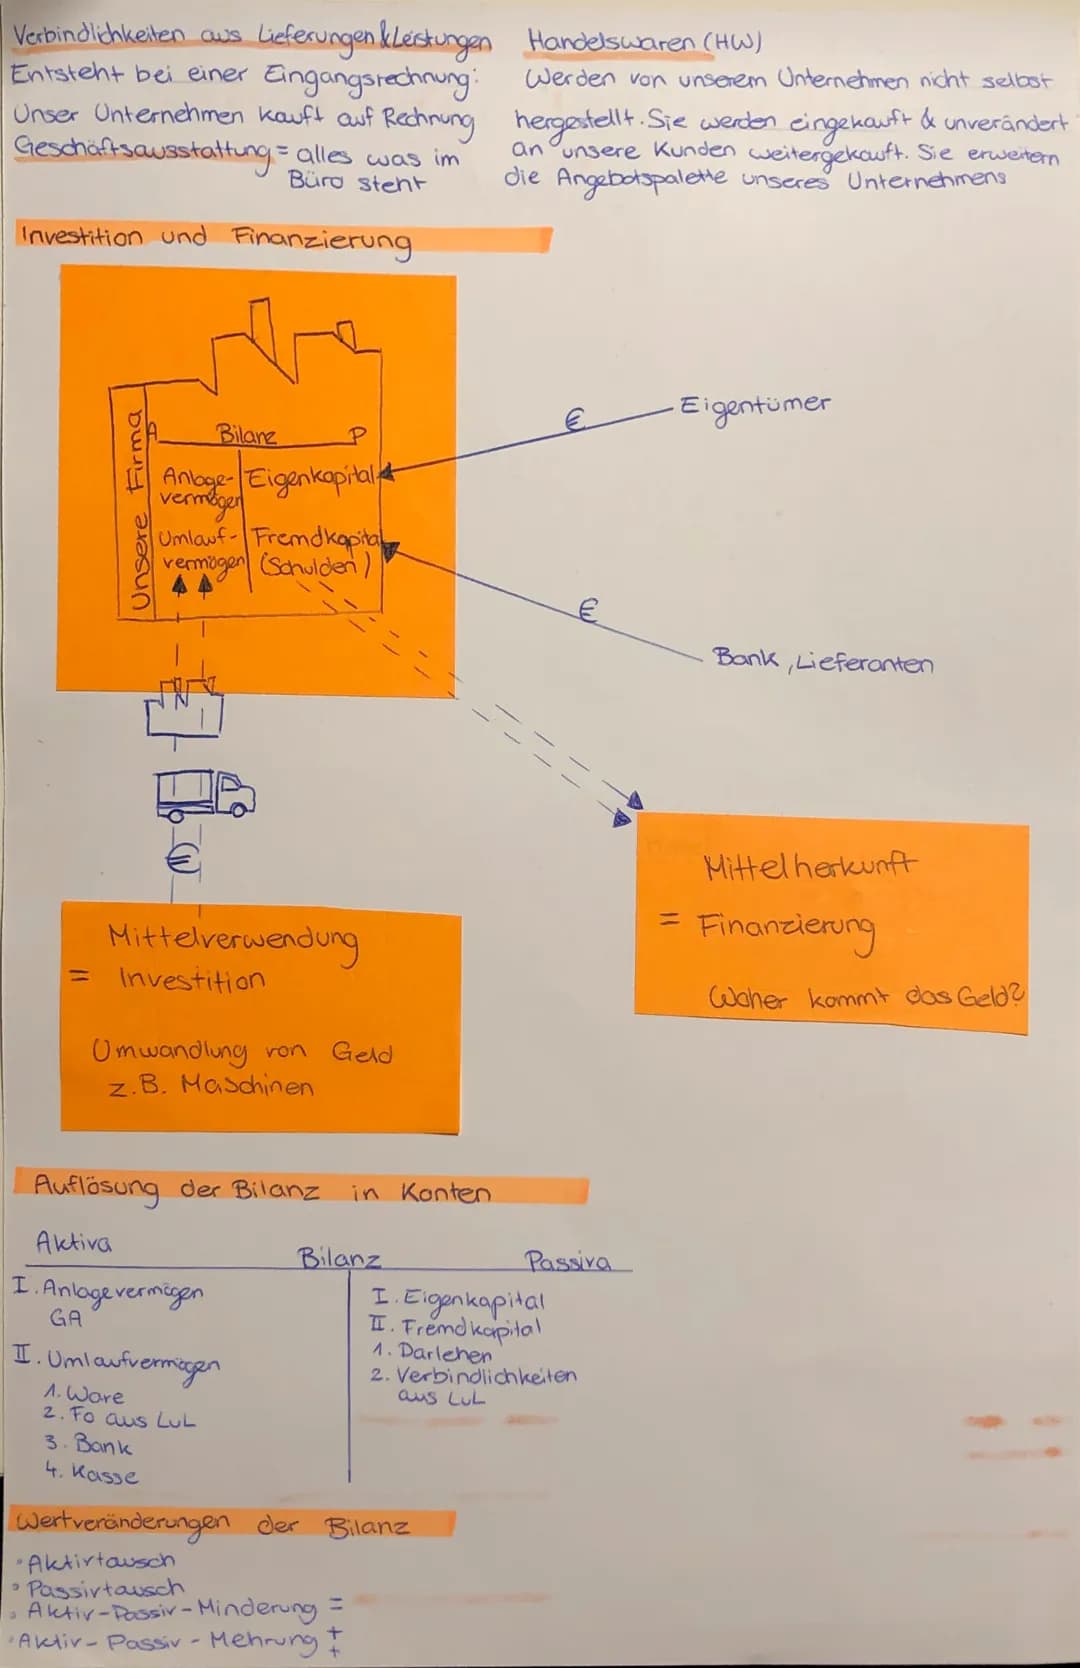 Verbindlichkeiten aus Lieferungen & Leistungen
Entsteht bei einer Eingangsrechnung:
Unser Unternehmen kauft auf Rechnung
Geschäftsausstattung = alles was im
Büro steht
Handelswaren (HW)
Werden von unserem Unternehmen nicht selbst
hergestellt. Sie werden eingekauft & unverändert
an unsere Kunden weitergekauft. Sie erweitern
die Angebotspalette unseres Unternehmens
Investition und Finanzierung
Unsere Firma
A Bilanz P
Anlage-
vermögen
Eigenkapital
Umlauf-
vermögen
Fremdkapital
(Schulden)
€
Eigentümer
€
Bank, Lieferanten
€
Mittelherkunft
= Finanzierung
Woher kommt das Geld?
Mittelverwendung
= Investition
Umwandlung von Geld
z.B. Maschinen
Auflösung der Bilanz in Konten
Aktiva Bilanz Passiva
I. Anlagevermögen
GA
II. Umlaufvermögen
1. Ware
2. Fo aus LuL
3. Bank
4. Kasse
I. Eigenkapital
II. Fremdkapital
1. Darlehen
2. Verbindlichkeiten
aus LuL
Wertveränderungen der Bilanz
• Aktivtausch
• Passivtausch
• Aktiv-Passiv-Minderung =
• Aktiv-Passiv-Mehrung + +